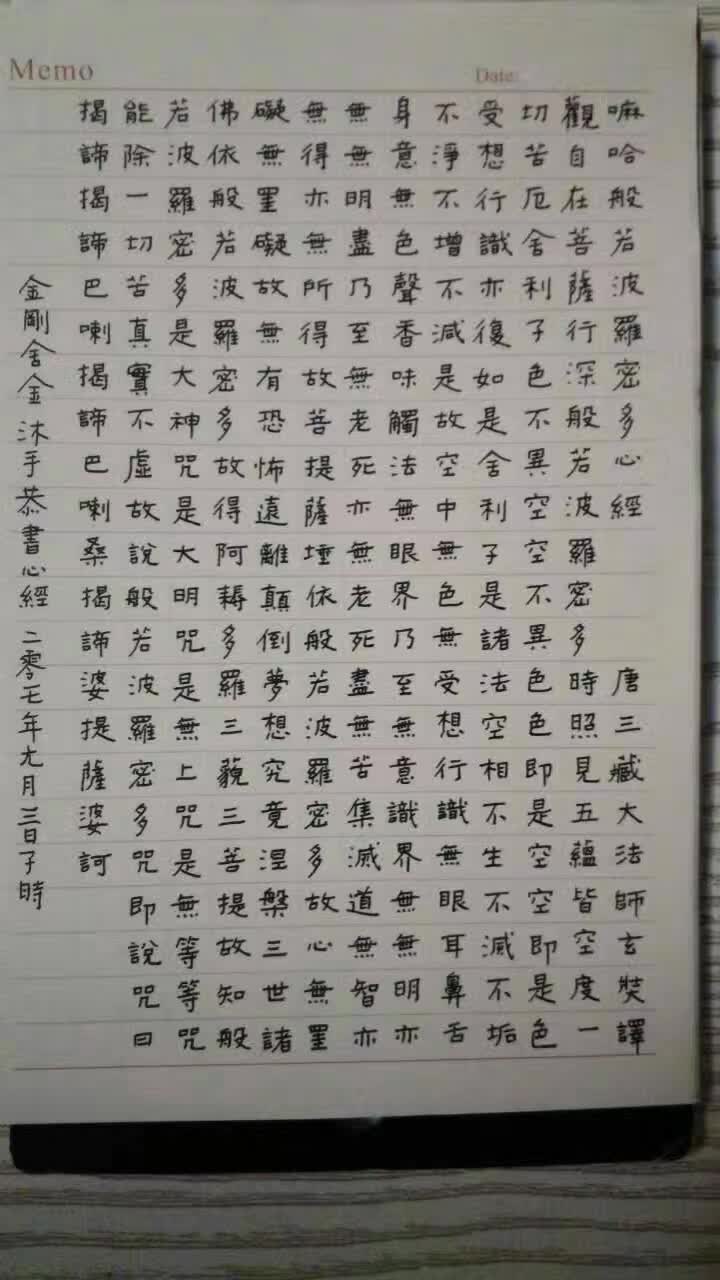 Memo
Date:
嘛哈般若波羅密多心經 唐三藏大法師玄奘譯
觀自在菩薩行深般若波羅密多時照見五蘊皆空度一
切苦厄舍利子色不異空空不異色色即是空空即是色
受想行識亦復如是舍利子是諸法空相不生不滅不垢
不淨不增不減是故空中無色無受想行識無眼耳鼻舌
身意無色聲香味觸法無眼界乃至無意識界無無明亦
無無明盡乃至無老死亦無老死盡無苦集滅道無智亦
無得亦無所得故菩提薩埵依般若波羅密多故心無罣
礙無罣礙故無有恐怖遠離顛倒夢想究竟涅槃三世諸
佛依般若波羅密多故得阿耨多羅三藐三菩提故知般
若波羅密多是大神咒是大明咒是無上咒是無等等咒
能除一切苦真實不虛故說般若波羅密多咒即說咒曰
揭諦揭諦巴喇揭諦巴喇桑揭諦婆提薩婆訶
金剛舍金沐手恭書心經 二零一七年九月三日子時